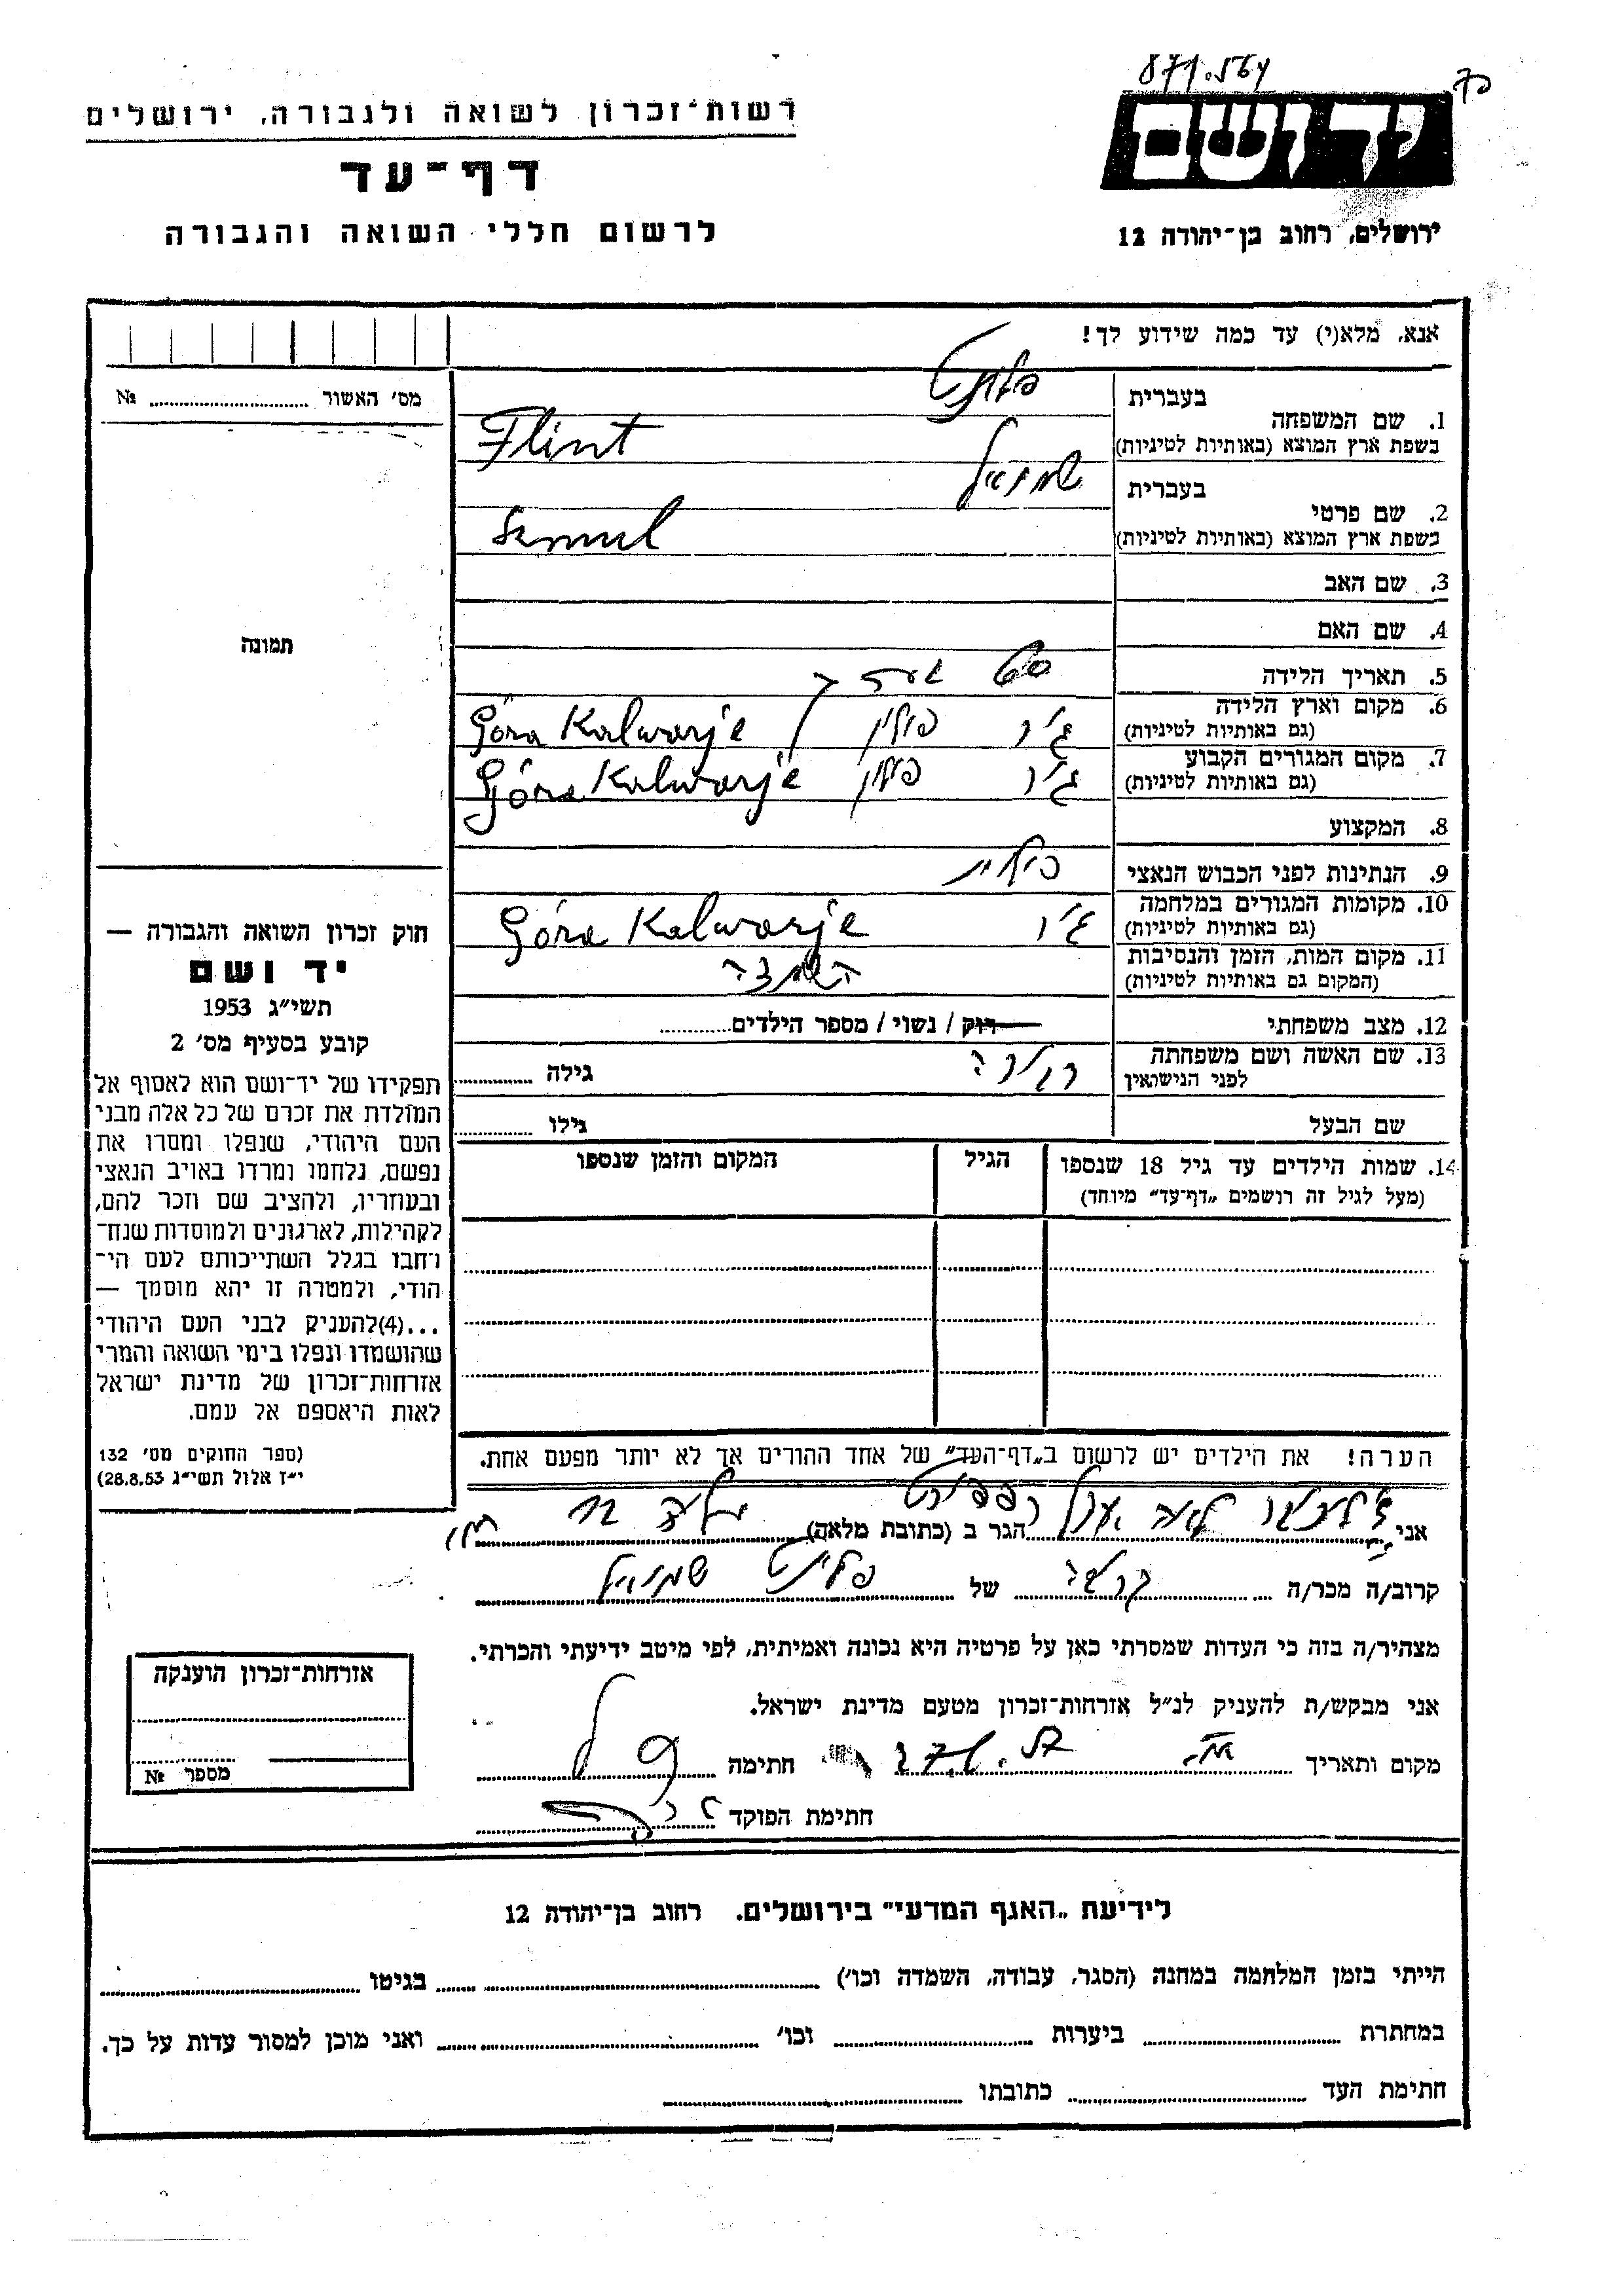 871.564
רשות־זכרון לשואה ולגבורה, ירושלים
דף־עד
לרשום חללי השואה והגבורה
ידושם
ירושלים, רחוב בן־יהודה 12
אנא, מלא(י) עד כמה שידוע לך!
מס׳ האשור ........ №
תמונה
1. שם המשפחה
בעברית פלינט
בשפת ארץ המוצא (באותיות לטיניות) Flint
2. שם פרטי
בעברית שמואל
בשפת ארץ המוצא (באותיות לטיניות) Szmul
3. שם האב
4. שם האם
5. תאריך הלידה
6. מקום וארץ הלידה
(גם באותיות לטיניות) גור פולין Góra Kalwarje
7. מקום המגורים הקבוע
(גם באותיות לטיניות) גור פולין Góra Kalwarje
8. המקצוע
9. הנתינות לפני הכבוש הנאצי פולנית
10. מקומות המגורים במלחמה
(גם באותיות לטיניות) גור Góra Kalwarje
11. מקום המות, הזמן והנסיבות
(המקום גם באותיות לטיניות) השמדה
12. מצב משפחתי רוק / נשוי / מספר הילדים........
13. שם האשה ושם משפחתה
לפני הנישואין גילה ........
שם הבעל גילו ........
14. שמות הילדים עד גיל 18 שנספו
(מעל לגיל זה רושמים „דף־עד״ מיוחד)
הגיל
המקום והזמן שנספו
הערה! את הילדים יש לרשום ב„דף־העד״ של אחד ההורים אך לא יותר מפעם אחת.
חוק זכרון השואה והגבורה —
יד ושם
תשי״ג 1953
קובע בסעיף מס׳ 2
תפקידו של יד־ושם הוא לאסוף אל
המולדת את זכרם של כל אלה מבני
העם היהודי, שנפלו ומסרו את
נפשם, נלחמו ומרדו באויב הנאצי
ובעוזריו, ולהציב שם וזכר להם,
לקהילות, לארגונים ולמוסדות שנח־
רחבו בגלל השתייכותם לעם הי־
הודי, ולמטרה זו יהא מוסמך —
...(4)להעניק לבני העם היהודי
שהושמדו ונפלו בימי השואה והמרי
אזרחות־זכרון של מדינת ישראל
לאות היאספם אל עמם.
(ספר החוקים מס׳ 132
י״ז אלול תשי״ג 28.8.53)
אני הגר ב (כתובת מלאה)
קרוב/ה מכר/ה קרובה של פלינט שמואל
מצהיר/ה בזה כי העדות שמסרתי כאן על פרטיה היא נכונה ואמיתית, לפי מיטב ידיעתי והכרתי.
אני מבקש/ת להעניק לנ״ל אזרחות־זכרון מטעם מדינת ישראל.
מקום ותאריך חתימה
חתימת הפוקד
אזרחות־זכרון הוענקה
מספר №
לידיעת „האגף המדעי״ בירושלים. רחוב בן־יהודה 12
הייתי בזמן המלחמה במחנה (הסגר, עבודה, השמדה וכו׳) ........ בגיטו ........
במחתרת ........ ביערות ........ וכו׳ ........ ואני מוכן למסור עדות על כך.
חתימת העד ........ כתובתו ........